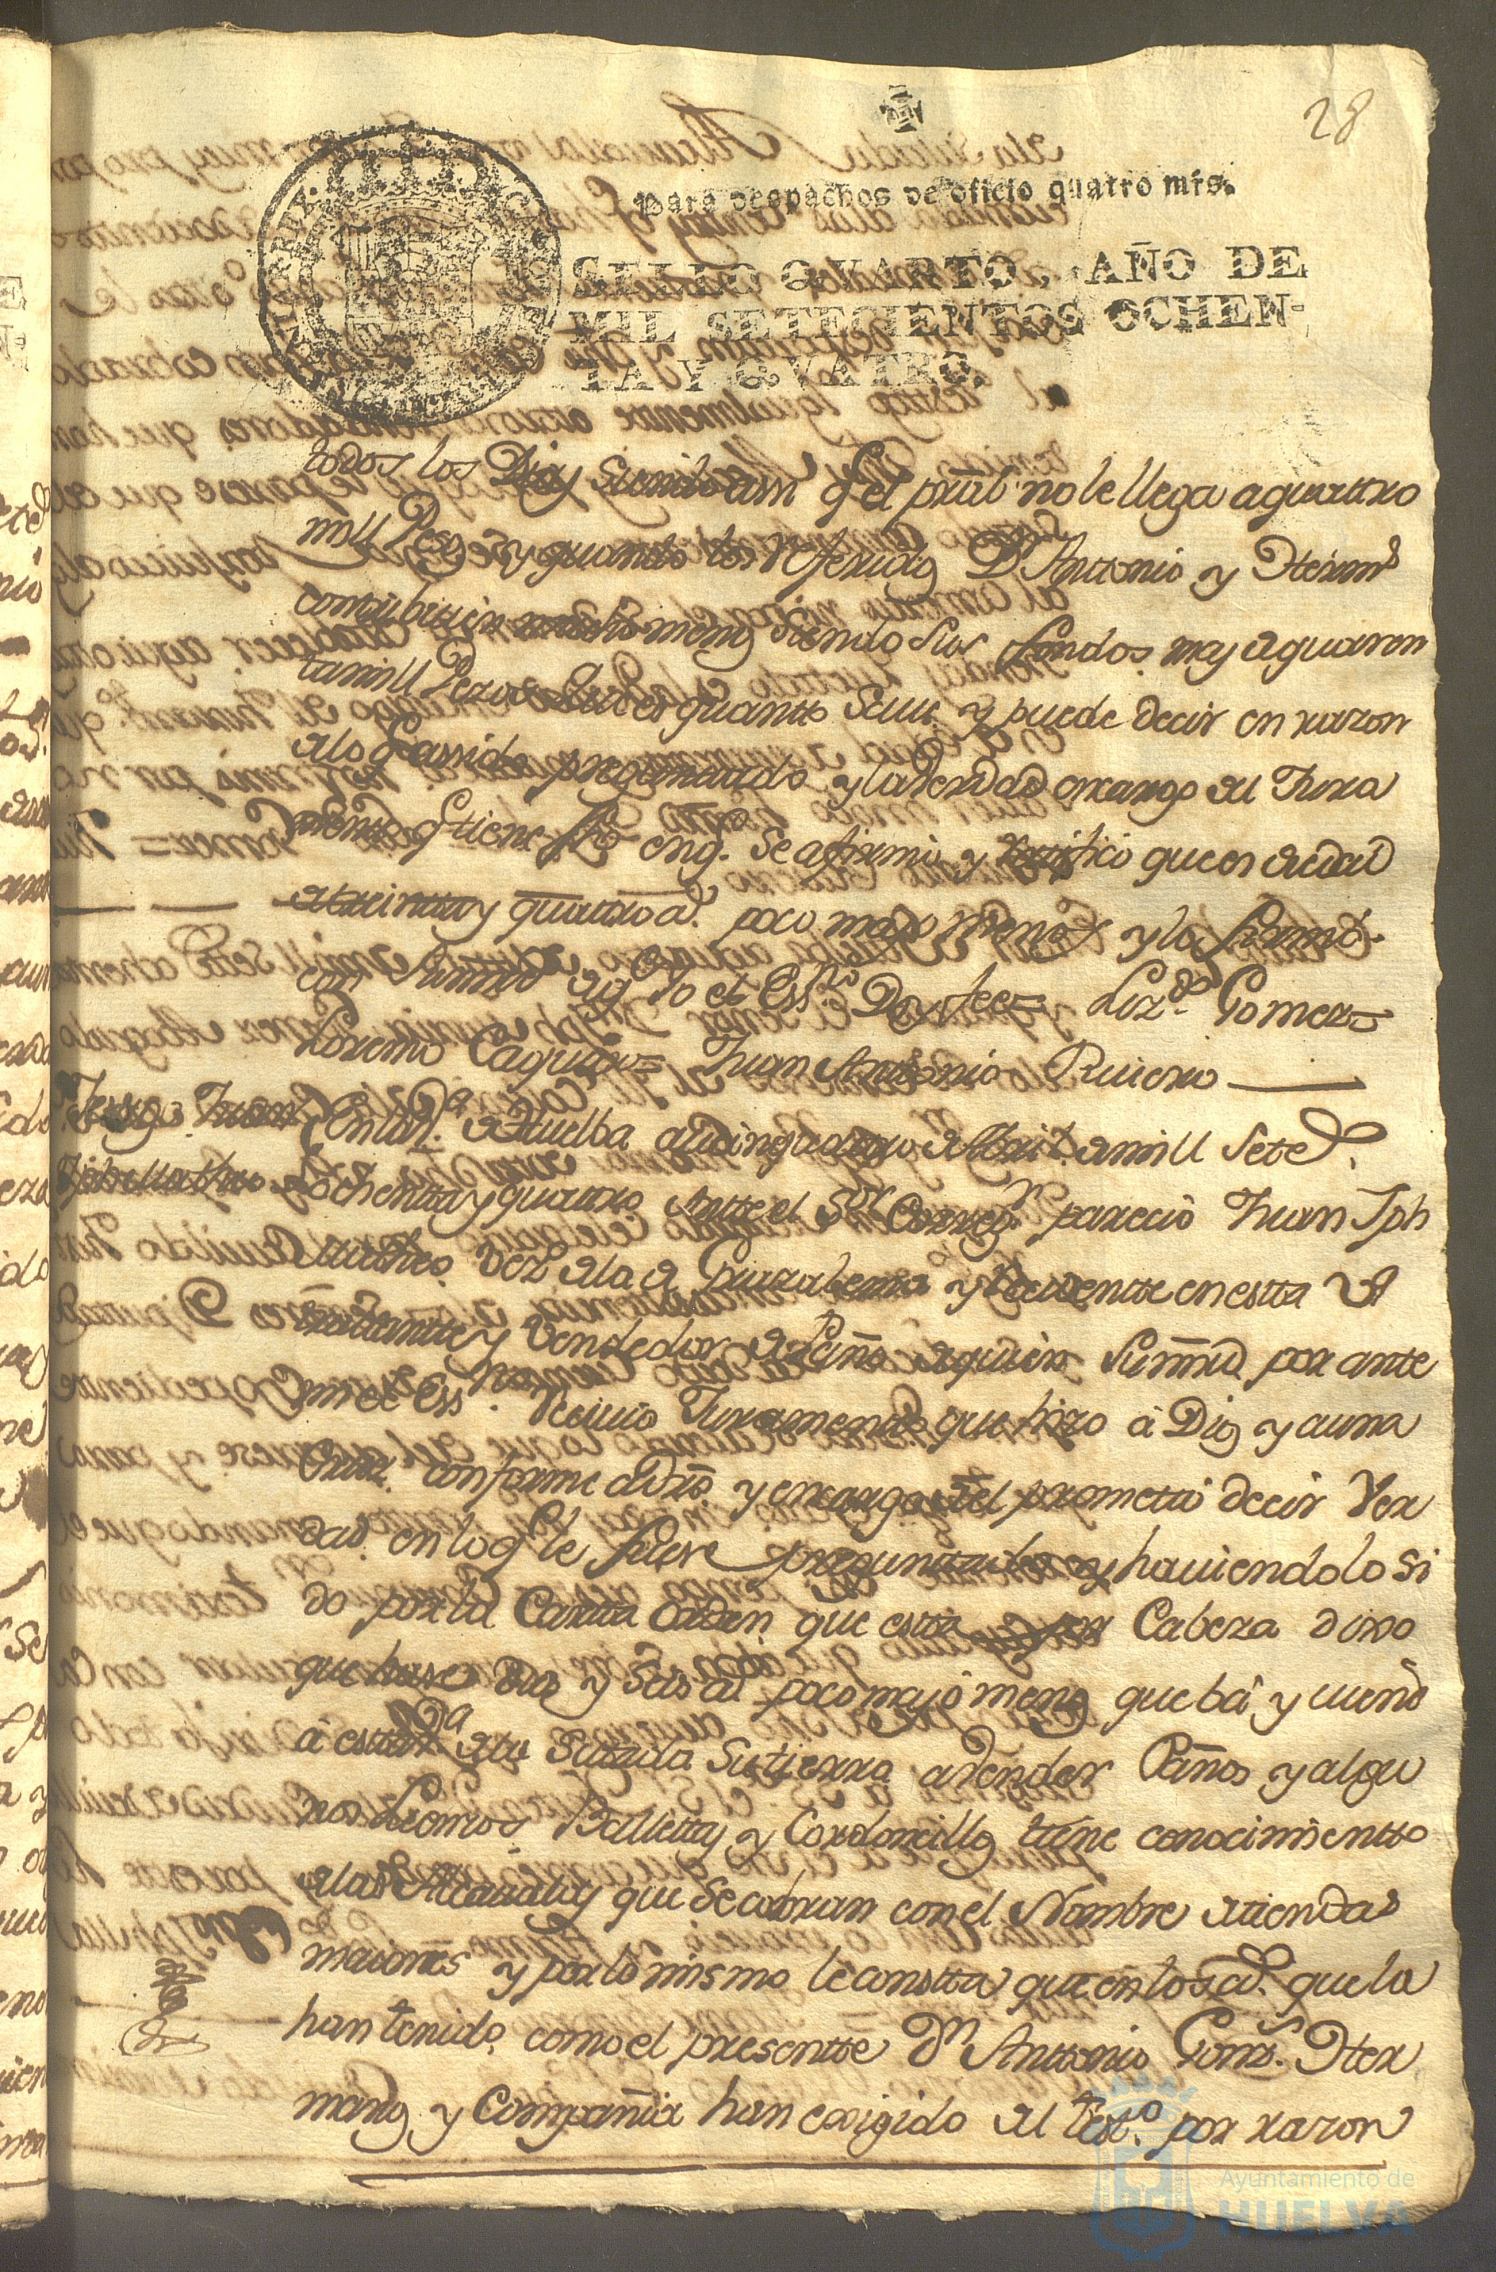 28
Para despachos de oficio quatro mrs.
SELLO QVARTO, AÑO DE
MIL SETECIENTOS OCHEN-
TA Y QVATRO.
todos los Dias siendo assi q el prãl no le llega a quattro
mill Pesos y quando los Referidos Dn Anttonio y Herms
contribuien mucho menos siendo sus fondos mas de quaren
tamill Pesos que es quantto save y puede decir en razon
de lo q a sido preguntado y la verdad en cargo del Jura
mento q tiene fho en q. Se afirmò y ratificò que es de edad
de treinta y quattro as. poco mas o menos y lo firmò
con su md de q Yo el Essno Doy fee= Lizdo Gomez=
Lorenzo = Juan Anttonio Riviera
Testgo Juan
Jph Matheo
En la Va de Huelba a de Abril de mill Setes.
ochentta y quattro Antte el Sor Corregr. pareciò Juan Jph
Matheo Vezo de la de Grazalema y Recidentte en estta Va
trattantte y Vendedor de Paños a quien Su md por ante
mi el Essno. Recivio Juramento que hizo à Dios y a una
Cruz conforme a Dro y en cargo de el prometiò decir Ver
dad en lo q le fuere preguntado y haviendolo si
do por la Cartta orden que estta por Cabeza dixo
que hase Dies y Seis as. poco mas o menos que bà y viene
à estta Va de la Sittada Su tierra a vender Paños y algu
nos Balletas y Cordoncillos tiene conocimientto
de las Alcavalas que se cobran con el Nombre de tiendas
mesones y por lo mismo le constta que en los as. que la
han tenido como el presentte Dn Anttonio Gonz. Her
manos y Compañia han exigido al testo. por razon
Ayuntamiento de
HUELVA